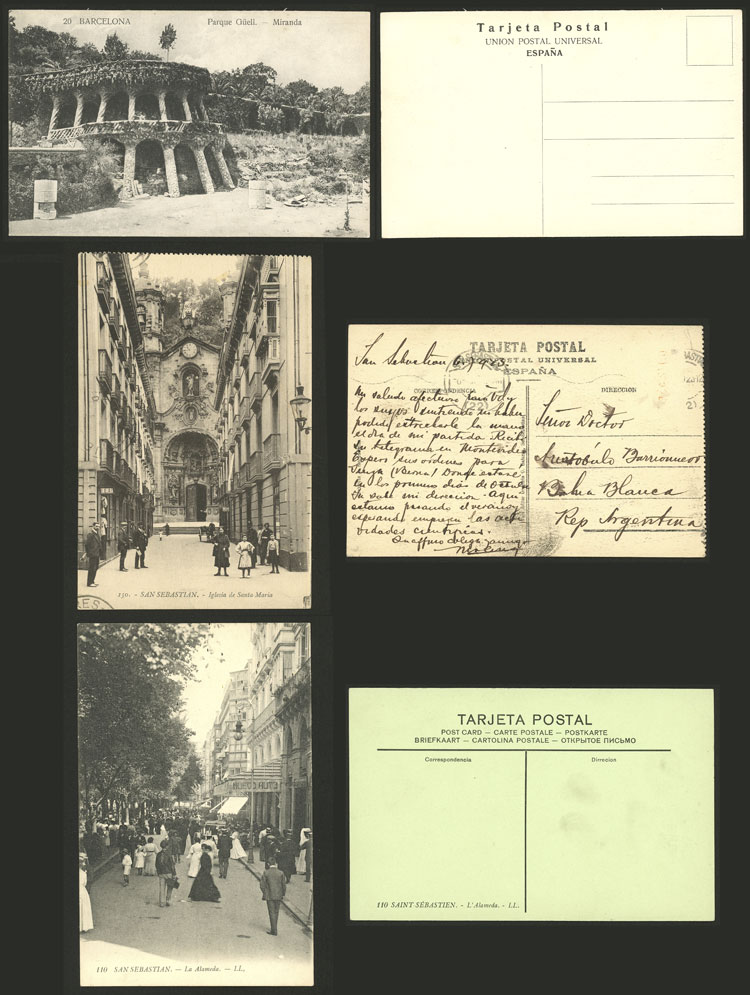 20 BARCELONA Parque Güell. — Miranda
Tarjeta Postal
UNION POSTAL UNIVERSAL
ESPAÑA
150. - SAN SEBASTIAN. - Iglesia de Santa Maria
TARJETA POSTAL
POSTAL UNIVERSAL
ESPAÑA
CORRESPONDENCIA
DIRECCION
San Sebastian
Mi saludo afectuoso para Vd y
los suyos sintiendo no haber
podido estrecharle la mano
el dia de mi partida Recibi
su telegrama en Montevideo
Espero sus ordenes para
(Berna) Donde estaré
en los primeros dias de
mi direccion. Aqui
estamos pasando el verano y
esperando las acti
vidades cientificas.
Señor Doctor
Aristobulo Barrionuevo
Bahia Blanca
Rep Argentina
(22)
110 SAN SEBASTIAN. — La Alameda. — LL.
TARJETA POSTAL
POST CARD — CARTE POSTALE — POSTKARTE
BRIEFKAART — CARTOLINA POSTALE — ОТКРЫТОЕ ПИСЬМО
Correspondencia
Direccion
110 SAINT-SÉBASTIEN. - L'Alameda. - LL.